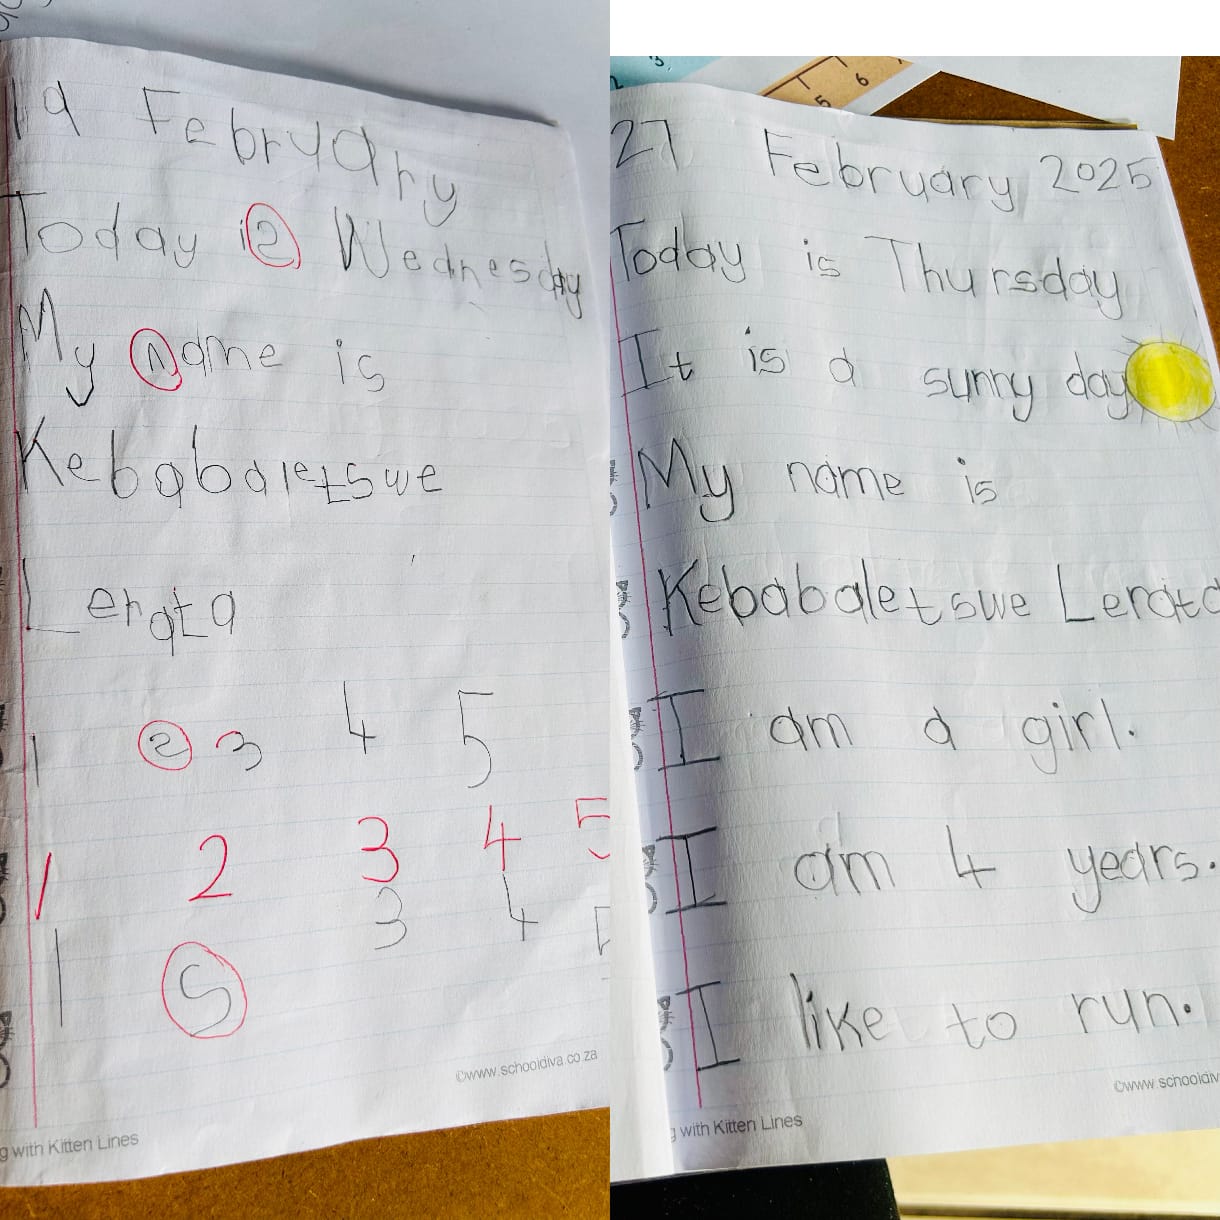 19 February
Today i2 Wednesday
My name is
Kebabaletswe
Lerata
1 2 3 4 5
1 2 3 4 5
1 S 3 4 5
©www.schooldiva.co.za
g with Kitten Lines
5 6
27 February 2025
Today is Thursday
It is a sunny day
My name is
Kebabaletswe Lerato
I am a girl.
I am 4 years.
I like to run.
©www.schooldiv
g with Kitten Lines